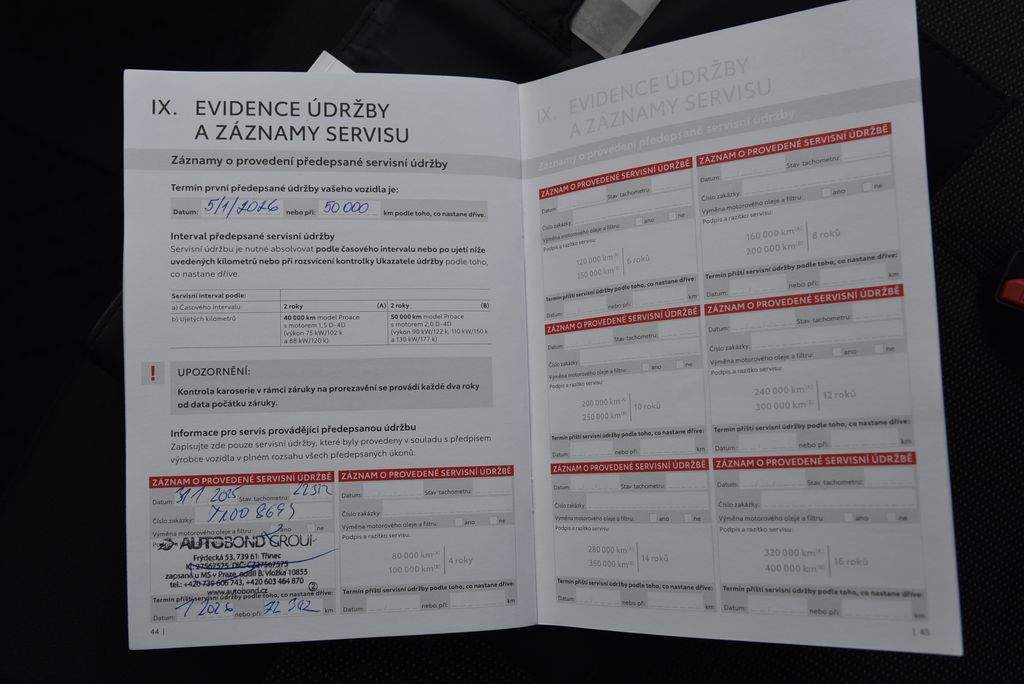 IX. EVIDENCE ÚDRŽBY
A ZÁZNAMY SERVISU
Záznamy o provedení předepsané servisní údržby
Termín první předepsané údržby vašeho vozidla je:
Datum: 5/1/2026 nebo při: 50 000 km podle toho, co nastane dříve.
Interval předepsané servisní údržby
Servisní údržbu je nutné absolvovat podle časového intervalu nebo po ujetí níže
uvedených kilometrů nebo při rozsvícení kontrolky Ukazatele údržby podle toho,
co nastane dříve.
Servisní interval podle:
a) Časového intervalu 2 roky (A) 2 roky (B)
b) Ujetých kilometrů 40 000 km model Proace 50 000 km model Proace
s motorem 1,5 D-4D s motorem 2,0 D-4D
(výkon 75 kW/102 k (výkon 90 kW/122 k, 110 kW/150 k
a 88 kW/120 k) a 130 kW/177 k)
! UPOZORNĚNÍ:
Kontrola karoserie v rámci záruky na prorezavění se provádí každé dva roky
od data počátku záruky.
Informace pro servis provádějící předepsanou údržbu
Zapisujte zde pouze servisní údržby, které byly provedeny v souladu s předpisem
výrobce vozidla v plném rozsahu všech předepsaných úkonů.
ZÁZNAM O PROVEDENÉ SERVISNÍ ÚDRŽBĚ
Datum: 31 1 2025 Stav tachometru:
Číslo zakázky:
Výměna motorového oleje a filtru: ano ne
AUTOBOND GROUP
Frýdecká 53, 739 61 Třinec
zapsaná u MS v Praze, oddíl B, vložka 10855
tel.: +420 739 606 743, +420 603 464 870
www.autobond.cz 2
Termín příští servisní údržby podle toho, co nastane dříve:
Datum: 1 2026 nebo při: 72 312 km
ZÁZNAM O PROVEDENÉ SERVISNÍ ÚDRŽBĚ
Datum: Stav tachometru:
Číslo zakázky:
Výměna motorového oleje a filtru: ano ne
Podpis a razítko servisu:
80 000 km(A)
100 000 km(B) 4 roky
Termín příští servisní údržby podle toho, co nastane dříve:
Datum: nebo při: km
44 |
IX. EVIDENCE ÚDRŽBY
A ZÁZNAMY SERVISU
Záznamy o provedení předepsané servisní údržby
ZÁZNAM O PROVEDENÉ SERVISNÍ ÚDRŽBĚ
Datum: Stav tachometru:
Číslo zakázky:
Výměna motorového oleje a filtru: ano ne
Podpis a razítko servisu:
120 000 km(A)
150 000 km(B) 6 roků
Termín příští servisní údržby podle toho, co nastane dříve:
Datum: nebo při: km
ZÁZNAM O PROVEDENÉ SERVISNÍ ÚDRŽBĚ
Datum: Stav tachometru:
Číslo zakázky:
Výměna motorového oleje a filtru: ano ne
Podpis a razítko servisu:
160 000 km(A)
200 000 km(B) 8 roků
Termín příští servisní údržby podle toho, co nastane dříve:
Datum: nebo při: km
ZÁZNAM O PROVEDENÉ SERVISNÍ ÚDRŽBĚ
Datum: Stav tachometru:
Číslo zakázky:
Výměna motorového oleje a filtru: ano ne
Podpis a razítko servisu:
200 000 km(A)
250 000 km(B) 10 roků
Termín příští servisní údržby podle toho, co nastane dříve:
Datum: nebo při: km
ZÁZNAM O PROVEDENÉ SERVISNÍ ÚDRŽBĚ
Datum: Stav tachometru:
Číslo zakázky:
Výměna motorového oleje a filtru: ano ne
Podpis a razítko servisu:
240 000 km(A)
300 000 km(B) 12 roků
Termín příští servisní údržby podle toho, co nastane dříve:
Datum: nebo při: km
ZÁZNAM O PROVEDENÉ SERVISNÍ ÚDRŽBĚ
Datum: Stav tachometru:
Číslo zakázky:
Výměna motorového oleje a filtru: ano ne
Podpis a razítko servisu:
280 000 km(A)
350 000 km(B) 14 roků
Termín příští servisní údržby podle toho, co nastane dříve:
Datum: nebo při: km
ZÁZNAM O PROVEDENÉ SERVISNÍ ÚDRŽBĚ
Datum: Stav tachometru:
Číslo zakázky:
Výměna motorového oleje a filtru: ano ne
Podpis a razítko servisu:
320 000 km(A)
400 000 km(B) 16 roků
Termín příští servisní údržby podle toho, co nastane dříve:
Datum: nebo při: km
| 45